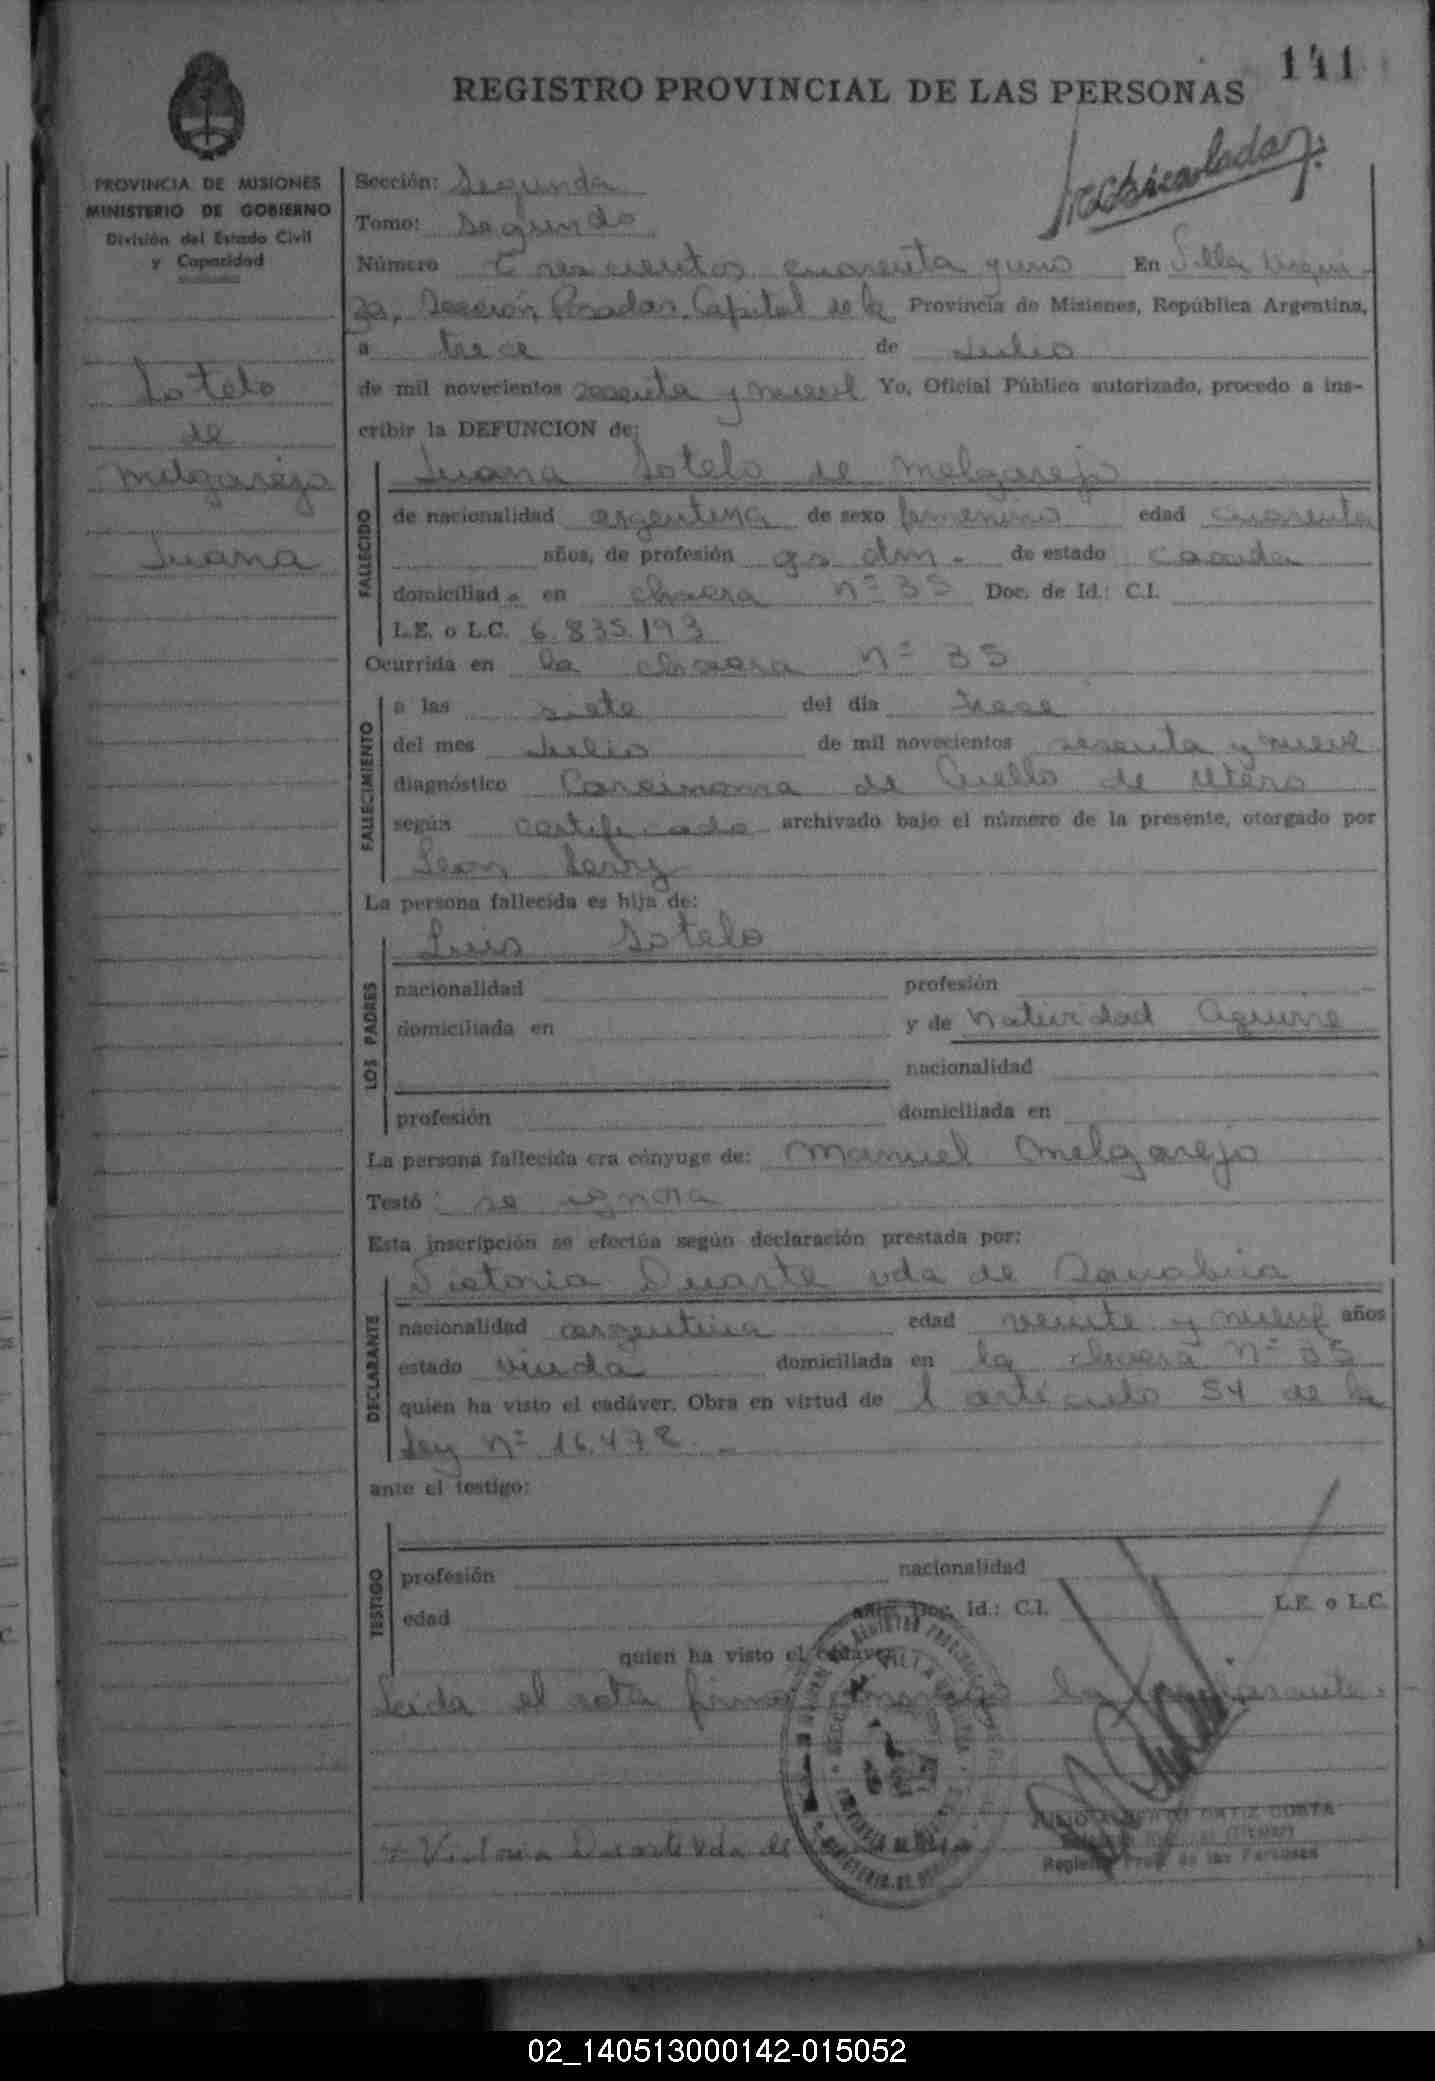 141
REGISTRO PROVINCIAL DE LAS PERSONAS
PROVINCIA DE MISIONES
MINISTERIO DE GOBIERNO
División del Estado Civil
y Capacidad
Sotelo
de
Melgarejo
Juana
Sección: Segunda
Tomo: Segundo
Número Trescientos cuarenta y uno En Villa Urqui-
za, Sección Posadas, Capital de la Provincia de Misiones, República Argentina,
a trece de Julio
de mil novecientos sesenta y nueve Yo, Oficial Público autorizado, procedo a ins-
cribir la DEFUNCION de:
FALLECIDO
Juana Sotelo de Melgarejo
de nacionalidad argentina de sexo femenino edad cuarenta
años, de profesión qs dm. de estado casada
domiciliada en chacra nº 35 Doc. de Id.: C.I.
L.E. o L.C. 6.835.193
Ocurrida en la chacra nº 35
FALLECIMIENTO
a las siete del día trece
del mes Julio de mil novecientos sesenta y nueve
diagnóstico Carcinoma de Cuello de utero
según certificado archivado bajo el número de la presente, otorgado por
Leon
La persona fallecida es hija de:
LOS PADRES
Luis Sotelo
nacionalidad profesión
domiciliada en y de Natividad Aguirre
nacionalidad
profesión domiciliada en
La persona fallecida era cónyuge de: Manuel Melgarejo
Testó: se ignora
Esta inscripción se efectúa según declaración prestada por:
DECLARANTE
Victoria Duarte vda de Sanabria
nacionalidad argentina edad veinte y nueve años
estado viuda domiciliada en la chacra Nº 35
quien ha visto el cadáver. Obra en virtud de l artículo 54 de la
Ley Nº 16.478.-
ante el testigo:
TESTIGO
profesión nacionalidad
edad Doc. Id.: C.I. L.E. o L.C.
quien ha visto el cadáver
Leida el acta firma conmigo la declarante.-
Victoria Duarte Vda de
JULIO ALBERTO ORTIZ COSTA
Registro Prov. de las Personas
02_140513000142-015052